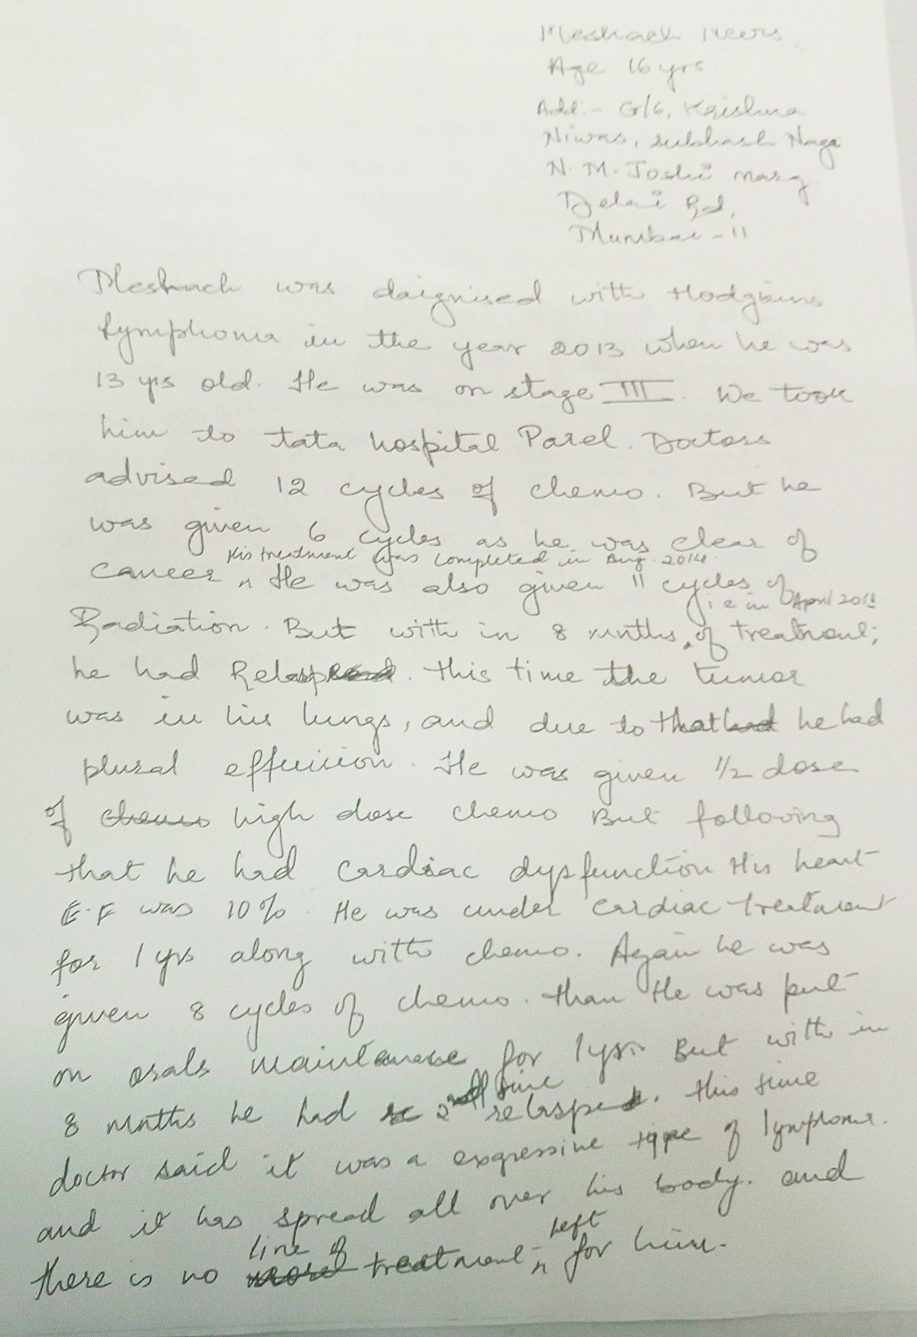 Meshach
Age 16 yrs
Add:- G/6, Krishna
Niwas, Subhash Naga
N. M. Joshi marg
Delai Rd,
Mumbai - 11
Meshach was daignised with Hodgkins
lymphoma in the year 2013 when he was
13 yrs old. He was on stage III. We took
him to tata hospital Parel. Doctors
advised 12 cycles of chemo. But he
was given 6 cycles as he was clear of
His treatment was completed in Aug. 2014
cancer ^ He was also given 11 cycles of
i.e in April 201
Radiation. But with in 8 mnths ^ of treatment;
he had Relapsed. This time the tumor
was in his lungs, and due to that he had
plural effuision. He was given 1/2 dose
of chemo high dose chemo But following
that he had cardiac dysfunction His heart
E.F was 10%. He was under cardiac treatment
for 1 yrs along with chemo. Again he was
given 8 cycles of chemo. than He was put
on orals maintanance for 1 yr. But with in
8 mnths he had 2nd time relapsed. This time
doctor said it was a exgressive type of lymphoma.
and it has spread all over his body. and
line of left
there is no more treatment ^ for him.